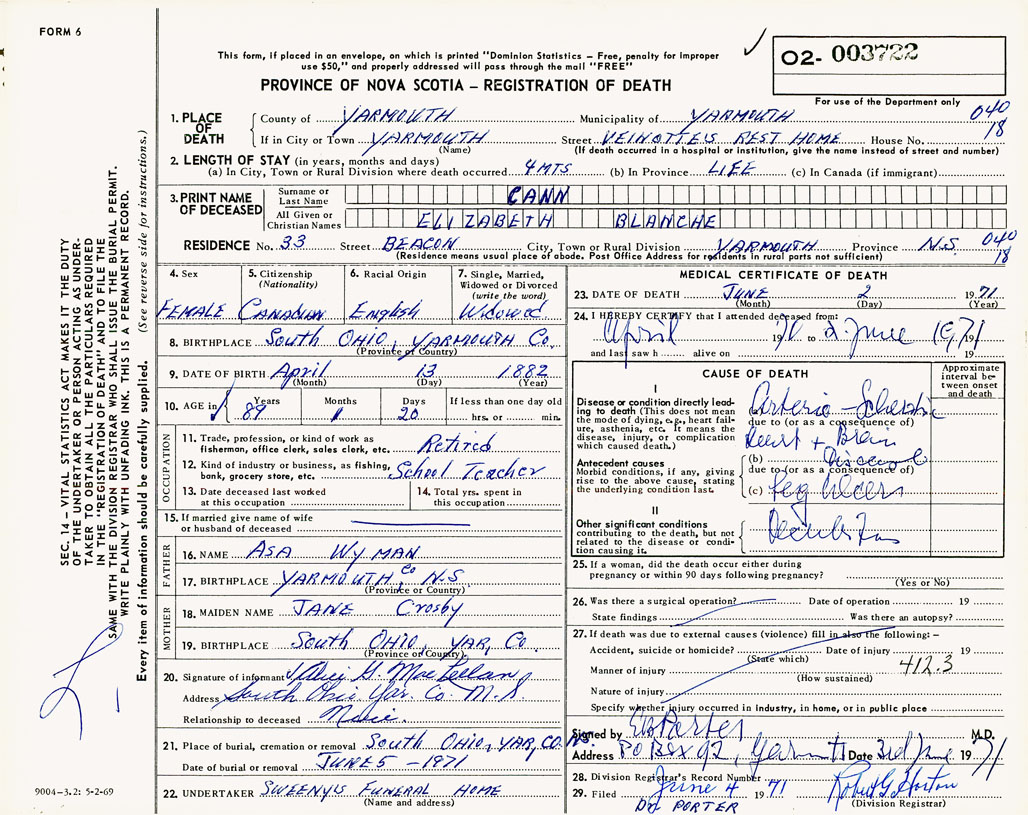 FORM 6
This form, if placed in an envelope, on which is printed "Dominion Statistics – Free, penalty for improper
use $50," and properly addressed will pass through the mail "FREE"
02- 003722
PROVINCE OF NOVA SCOTIA – REGISTRATION OF DEATH
For use of the Department only
1. PLACE OF DEATH
County of YARMOUTH Municipality of YARMOUTH 040
If in City or Town YARMOUTH Street VEINOTTE'S REST HOME House No. 18
(Name) (If death occurred in a hospital or institution, give the name instead of street and number)
2. LENGTH OF STAY (in years, months and days)
(a) In City, Town or Rural Division where death occurred 4 MTS (b) In Province LIFE (c) In Canada (if immigrant)
3. PRINT NAME OF DECEASED
Surname or Last Name CANN
All Given or Christian Names ELIZABETH BLANCHE
RESIDENCE No. 33 Street BEACON City, Town or Rural Division YARMOUTH Province N.S. 040
(Residence means usual place of abode. Post Office Address for residents in rural parts not sufficient) 18
4. Sex
FEMALE
5. Citizenship
(Nationality)
CANADIAN
6. Racial Origin
English
7. Single, Married,
Widowed or Divorced
(write the word)
Widowed
8. BIRTHPLACE South OHIO, YARMOUTH Co.
(Province or Country)
9. DATE OF BIRTH April 13 1882
(Month) (Day) (Year)
10. AGE in
Years 89
Months 1
Days 20
If less than one day old
hrs. or min.
OCCUPATION
11. Trade, profession, or kind of work as
fisherman, office clerk, sales clerk, etc. Retired
12. Kind of industry or business, as fishing,
bank, grocery store, etc. School Teacher
13. Date deceased last worked
at this occupation
14. Total yrs. spent in
this occupation
15. If married give name of wife
or husband of deceased
FATHER
16. NAME ASA WYMAN
17. BIRTHPLACE YARMOUTH Co N.S
(Province or Country)
MOTHER
18. MAIDEN NAME JANE Crosby
19. BIRTHPLACE South OHIO, YAR, Co
(Province or Country)
20. Signature of informant G. MacLellan
Address South Ohio Yar. Co. N.S.
Relationship to deceased
21. Place of burial, cremation or removal South OHIO, YAR, CO. N.S.
Date of burial or removal JUNE 5 – 1971
22. UNDERTAKER SWEENY'S FUNERAL HOME
(Name and address)
MEDICAL CERTIFICATE OF DEATH
23. DATE OF DEATH JUNE 2 1971
(Month) (Day) (Year)
24. I HEREBY CERTIFY that I attended deceased from:
April 19 to 2 June 1971
and last saw h alive on 19
CAUSE OF DEATH
Approximate interval between onset and death
I
Disease or condition directly leading to death (This does not mean the mode of dying, e.g., heart failure, asthenia, etc. It means the disease, injury, or complication which caused death.)
due to (or as a consequence of)
Heart + Brain
Antecedent causes
Morbid conditions, if any, giving rise to the above cause, stating the underlying condition last.
(b)
due to (or as a consequence of)
(c) Leg Ulcers
II
Other significant conditions
contributing to the death, but not related to the disease or condition causing it.
25. If a woman, did the death occur either during
pregnancy or within 90 days following pregnancy?
(Yes or No)
26. Was there a surgical operation? Date of operation 19
State findings Was there an autopsy?
27. If death was due to external causes (violence) fill in also the following: –
Accident, suicide or homicide? Date of injury 19
(State which)
Manner of injury 412.3
(How sustained)
Nature of injury
Specify whether injury occurred in industry, in home, or in public place
Signed by Porter M.D.
Address PO Box 92, Yarmouth Date 3rd June 1971
28. Division Registrar's Record Number
29. Filed June 4 1971 Robert G Horton
(Division Registrar)
DR PORTER
SEC. 14 – VITAL STATISTICS ACT MAKES IT THE DUTY
OF THE UNDERTAKER OR PERSON ACTING AS UNDER-
TAKER TO OBTAIN ALL THE PARTICULARS REQUIRED
IN THE "REGISTRATION OF DEATH" AND TO FILE THE
SAME WITH THE DIVISION REGISTRAR WHO SHALL ISSUE THE BURIAL PERMIT.
WRITE PLAINLY WITH UNFADING INK. THIS IS A PERMANENT RECORD.
Every item of information should be carefully supplied. (See reverse side for instructions.)
9004-3.2: 5-2-69